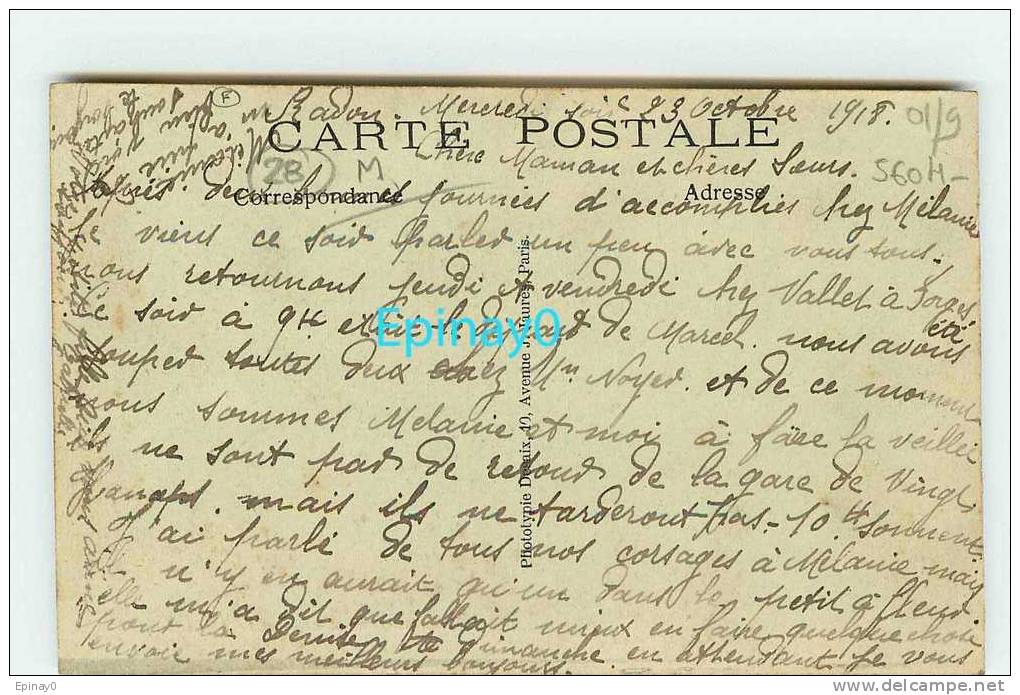 Radon. Mercredi soir 23 Octobre 1918.
01/9
F
CARTE POSTALE
Chère Maman et chères Sœurs.
28
M
560H-
Correspondance
Adresse
Après deux journées d'accomplies chez Mélanie
Je viens ce soir parler un peu avec vous tous.
nous retournons jeudi et vendredi chez Vallet à Forges
Ce soir à 9H de Marcel. nous avons été
souper toutes deux chez Mm Noyer. et de ce moment
nous sommes Mélanie et moi à faire la veillée
ils ne sont pas de retour de la gare de Vingt
Hanaps. mais ils ne tarderont pas - 10H sonnent
J'ai parlé de tous nos corsages à Mélanie mais
il n'y en aurait qu'un dans le petit à fleur
elle m'a dit que fallait mieux en faire quelque chose
pour la Dimanche en attendant je vous
envoie mes meilleurs bonjours.
Phototypie Desaix, 40, Avenue J. Jaurès, Paris.
Epinay0
Epinay0
delcampe.net